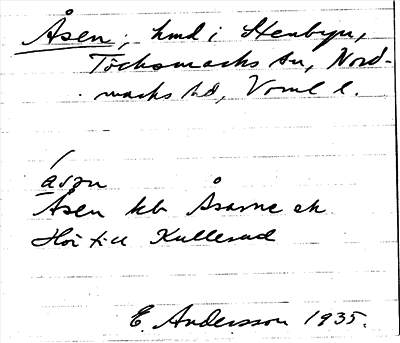 Åsen, hmd i Stenbyn,
Töcksmarks sn, Nord-
marks hd, Verml l.
åsən
Åsen kb Åsarne ek
Hör till Kullerud
E. Andersson 1935.